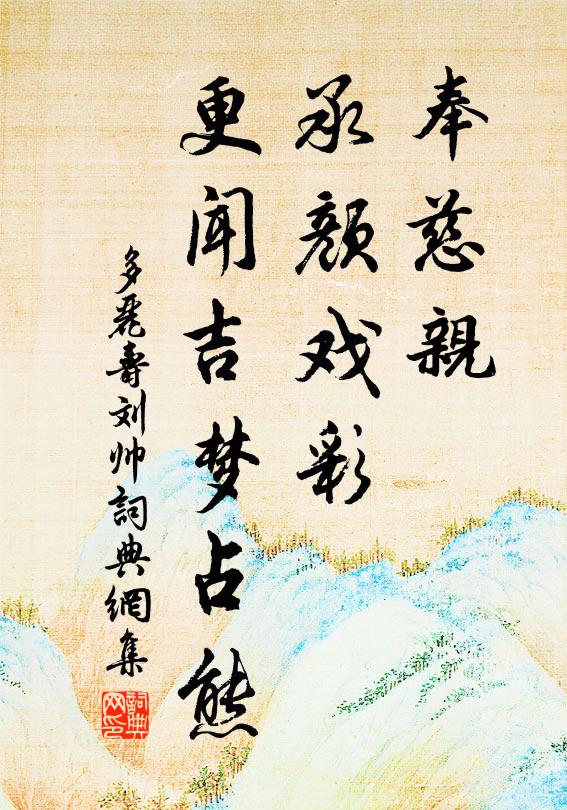 奉慈親
承顏戏彩
更闻吉梦占熊
多麗壽刘帅詞典網集
詞典网印